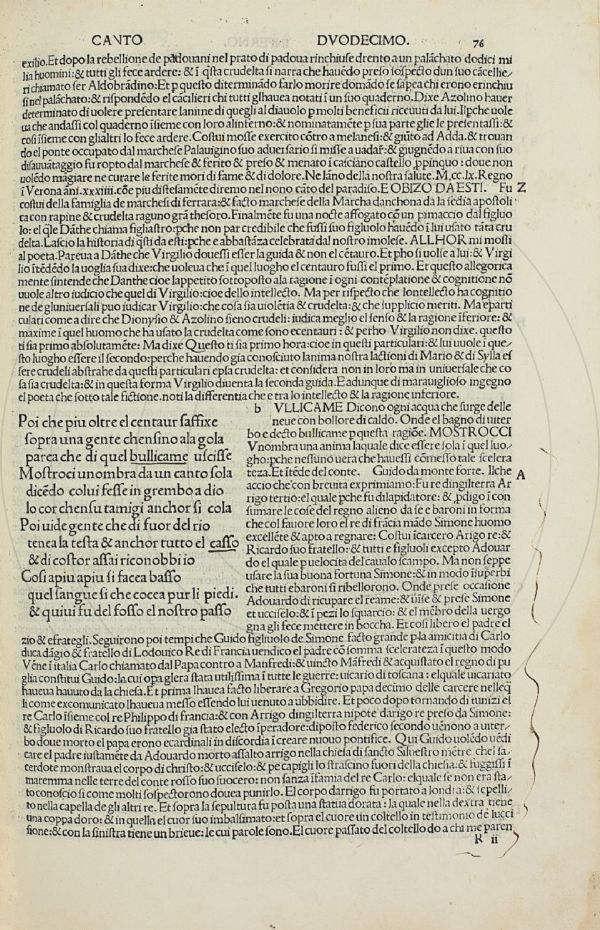 CANTO DVODECIMO. 76
exilio. Et dopo la rebellione de padouani nel prato di padoua rinchiuse drento a un palãchato dodici mi
lia huomini: & tutti gli fece ardere: & ĩ q̃sta crudelta si narra che hauẽdo preso sospecto dun suo cãcellie/
ri chiamato ser Aldobrãdino: Et p questo diterminãdo farlo morire domãdo se sapea chi erono erinchiu
si nel palãchato: & rispõdẽdo el cãcilieri chi tutti glhauea notati ĩ un suo quaderno. Dixe Azolino hauer
determinato di uolere presentare lanime di quegli al diauolo p molti benefici riceuuti da lui. Ilpche uole
ua che andassi col quaderno ĩsieme con loro alinferno: & nominatamẽte p sua parte glie le presentassi: &
cosi ĩsieme con glialtri lo fece ardere. Costui mosse exercito cõtro a melanesi: & giũto ad Adda. & trouan
do el ponte occupato dal marchese Palauigino suo aduersario si misse a uadar: & giugnẽdo a riua con suo
disauuataggio fu ropto dal marchese & ferito & preso & menato ĩ casciano castello ppinquo: doue non
uolẽdo magiare ne curare le ferite mori di fame & di dolore. Ne lãno della nostra salute. M.cc.lx. Regno
ĩ Verona ãni. xxxiiii. cõe piu distesamẽte diremo nel nono cãto del paradiso. E OBIZO DA ESTI. Fu Z
costui della famiglia de marchesi di ferrara: & facto marchese della Marcha danchona da la sedia apostoli
ca con rapine & crudelta raguno grã thesoro. Finalmẽte fu una nocte affogato cõ un pimaccio dal figluo
lo: el q̃le Dãthe chiama fighastro: pche non par credibile che fussi suo figluolo hauẽdo ĩ lui usato tãta cru
delta. Lascio la historia di q̃sti da esti: pche e abbastãza celebrata dal nostro imolese. ALLHOR mi mosti
al poeta. Pareua a Dãthe che Virgilio douessi esser la guida & non el cẽtauro. Et pho si uolse a lui: & Virgi
lio ĩtẽdẽdo la uoglia sua dixe: che uoleua che ĩ quel luogho el centauro fussi el primo. Et questo allegorica
mente sintende che Danthe cioe lappetito sottoposto ala ragione ĩ ogni contẽplatione & cognitione nõ
uuole altro iudicio che quel di Virgilio: cioe dello intellecto. Ma per rispecto che lontellecto ha cognitio
ne de gluniuersali puo iudicar Virgilio: che cosa sia uiolẽtia & crudelta: & che supplicio meriti. Ma eparti
culari come a dire che Dionysio & Azolino sieno crudeli: iudica meglio el senso & la ragione ĩferiore: &
maxime ĩ quel huomo che ha usato la crudelta come sono ecentauri: & perho Virgilio non dixe. questo
ti sia primo absolutamẽte: Ma dixe Questo ti sia primo hora: cioe in questi particulari: & lui uuole ĩ que/
sto luogho essere il secondo: perche hauendo gia conosciuto lanima nostra lactioni di Mario & di Sylla es
sere crudeli abstrahe da questi particulari epsa crudelta: et considera non in loro ma in uniuersale che co
sa sia crudelta: & in questa forma Virgilio diuenta la seconda guida. E adunque di marauiglioso ingegno
el poeta che sotto tale fictione. noti la differentia che e tra lo intellecto & la ragione inferiore.
Poi che piu oltre el centaur saffixe
sopra una gente chensino ala gola
parea che di quel bullicame uscisse
Mostroci unombra da un canto sola
dicẽdo colui fesse in grembo a dio
lo cor chensu tamigi anchor si cola
Poi uide gente che di fuor del rio
tenea la testa & anchor tutto el casso
& di costor assai riconobbi io
Cosi apiu apiu si facea basso
quel sangue si che cocea pur li piedi.
& quiui fu del fosso el nostro passo
b VLLICAME Dicono ogni acqua che surge delle
neue con bollore di caldo. Onde el bagno di uiter
bo e decto bullicame p questa ragiõe. MOSTROCCI
Vnombra una anima laquale dice essere sola ĩ quel luo/
gho: pche nessuno uera che hauessi cõmesso tale scelera
teza. Et ĩtẽde del conte. Guido da monte forte. Ilche A
accio che con breuita exprimiamo: Fu re dinghilterra Ar
rigo tertio: el quale pche fu dilapidatore: & pdigo ĩ con
sumare le cose del regno alieno da se e baroni in forma
che col fauore loro el re di frãcia mãdo Simone huomo
excellẽte & apto a regnare: Costui ĩcarcero Arigo re: &
Ricardo suo fratello: & tutti e figluoli excepto Adouar
do el quale p uelocita del cauallo scampo. Ma non seppe
usare la sua buona fortuna Simone: & in modo ĩsuperbi
che tutti ebaroni si ribellorono. Onde prese occasione
Adouardo di ricupare el reame: & uĩse & prese Simone
et ucciselo: & ĩ pezi lo squarcio: & el mẽbro della uergo
gna gli fece mettere in boccha. Et cosi libero el padre el
zio & efrategli. Seguirono poi tempi che Guido figluolo de Simone facto grande p la amicitia di Carlo
duca dãgio & fratello di Lodouico Re di Francia uendico el padre cõ somma scelerateza ĩ questo modo
Vẽne ĩ italia Carlo chiamato dal Papa contro a Manfredi: & uincto Mãfredi & acquistato el regno di pu
glia constitui Guido: la cui opa glera stata utilissima ĩ tutte le guerre: uicario di toscana: elquale uicariato
haueua hauuto da la chiesa. Et prima lhauea facto liberare a Gregorio papa decimo delle carcere nelleq̃
li come excomunicato lhauea messo essendo lui uenuto a ubbidire. Et poco dopo tornando di tunizi el
re Carlo ĩsieme col re Philippo di francia: & con Arrigo dingilterra nipote darigo re preso da Simone:
& figluolo di Ricardo suo fratello gia stato electo ĩperadore: diposito federico secondo uẽnono a uiter
bo doue morto el papa erono ecardinali in discordia ĩ creare nuouo pontifice. Qui Guido uolẽdo uẽdi
care el padre iustamẽte da Adouardo morto assalto arrigo nella chiesa di sancto Siluestro mẽtre chel sa/
cerdote monstraua el corpo di christo: & ucciselo: & pe capigli lo strascino fuori della chiesa: & fuggissi ĩ
maremma nelle terre del conte rosso suo suocero: non sanza ĩfamia del re Carlo: elquale se non era sta/
to conoscio si come molti sospectorono douea punirlo. El corpo darrigo fu portato a londra: & sepelli/
to nella capella de gli altri re. Et sopra la sepultura fu posta una statua dorata: la quale nella dextra tiene
una coppa doro: & in quella el cuor suo imbalsimato: et sopra el cuore un coltello in testimonio de lucci
sione: & con la sinistra tiene un brieue: le cui parole sono. El cuore passato del coltello do a chi me paren
K ii